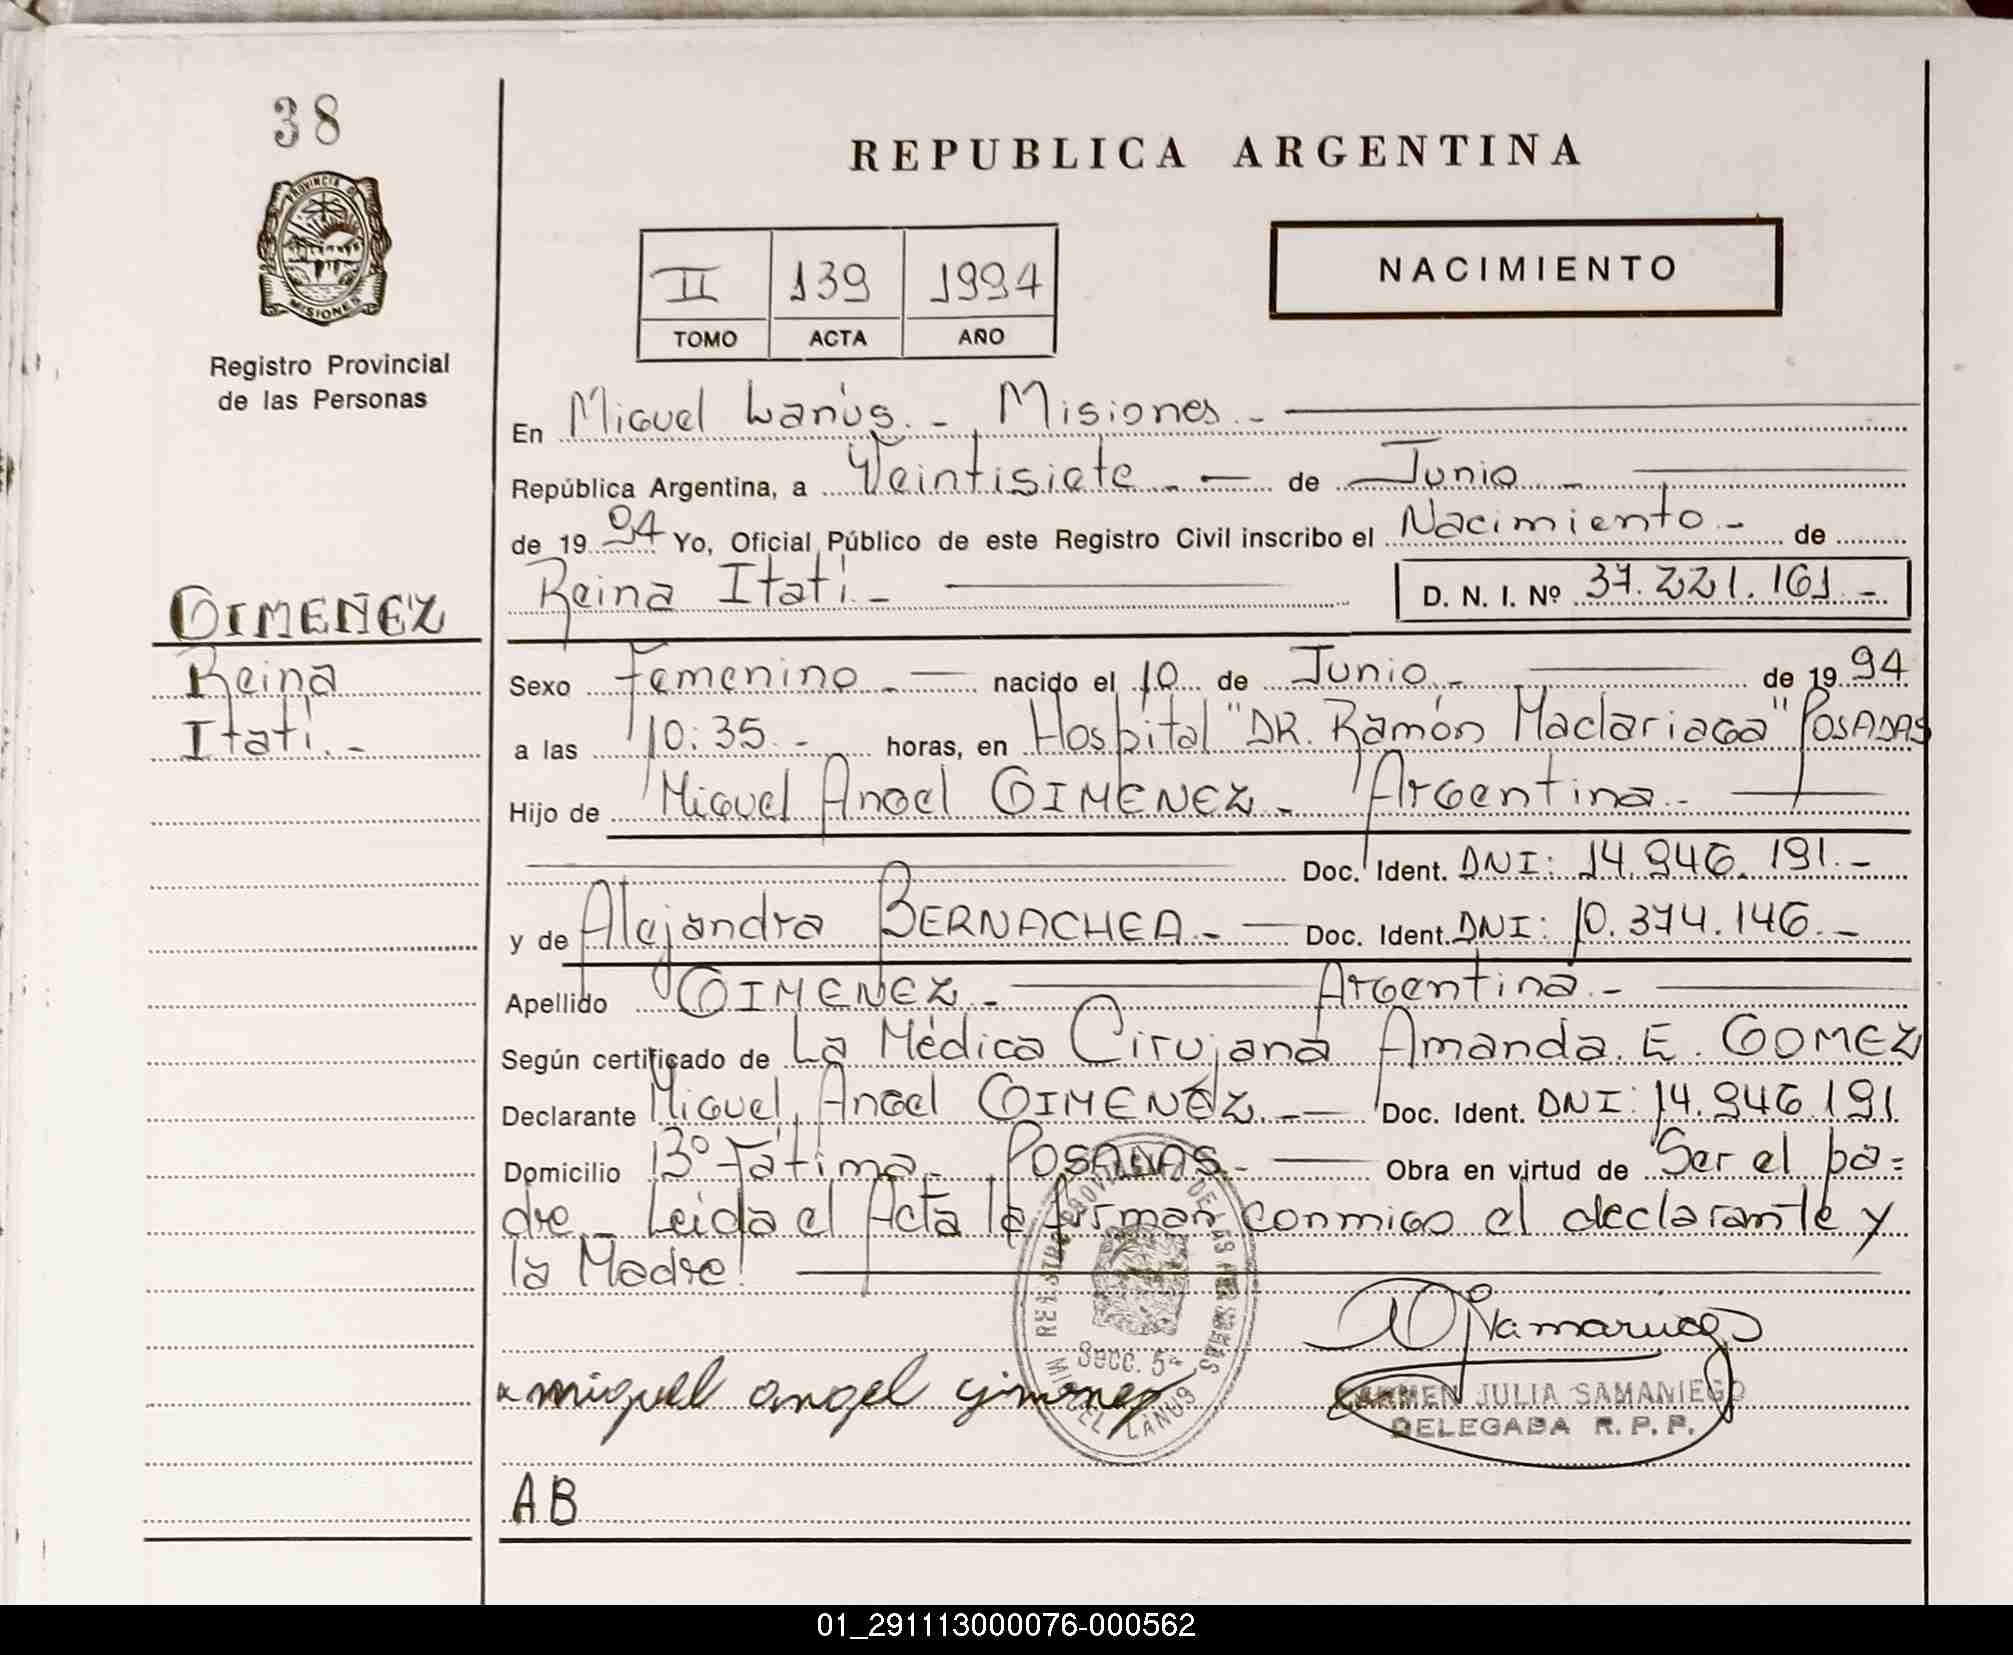 38
REPUBLICA ARGENTINA
PROVINCIA D
MISIONES
Registro Provincial
de las Personas
II 139 1994
TOMO ACTA AÑO
NACIMIENTO
En Miguel Lanús.- Misiones.-
República Argentina, a Veintisiete.- de Junio.-
de 1994 Yo, Oficial Público de este Registro Civil inscribo el Nacimiento.- de
Reina Itatí.- D. N. I. Nº 37.221.161.-
GIMENEZ
Reina
Itatí.-
Sexo Femenino.- nacido el 10 de Junio.- de 1994
a las 10:35.- horas, en Hospital "DR. Ramón Madariaga" POSADAS
Hijo de Miguel Angel GIMENEZ.- Argentina.-
Doc. Ident. DNI: 14.946.191.-
y de Alejandra BERNACHEA.- Doc. Ident. DNI: 10.374.146.-
Apellido GIMENEZ.- Argentina.-
Según certificado de La Médica Cirujana Amanda. E. GOMEZ
Declarante Miguel Angel GIMENEZ.- Doc. Ident. DNI: 14.946.191
Domicilio Bº Fátima.- POSADAS.- Obra en virtud de Ser el pa=
dre.- Leida el Acta la firman conmigo el declarante y
la Madre!
REGISTRO PROVINCIAL DE LAS PERSONAS
Secc. 5ª
MIGUEL LANUS
miguel angel gimenez
CARMEN JULIA SAMANIEGO
DELEGADA R. P. P.
AB
01_291113000076-000562